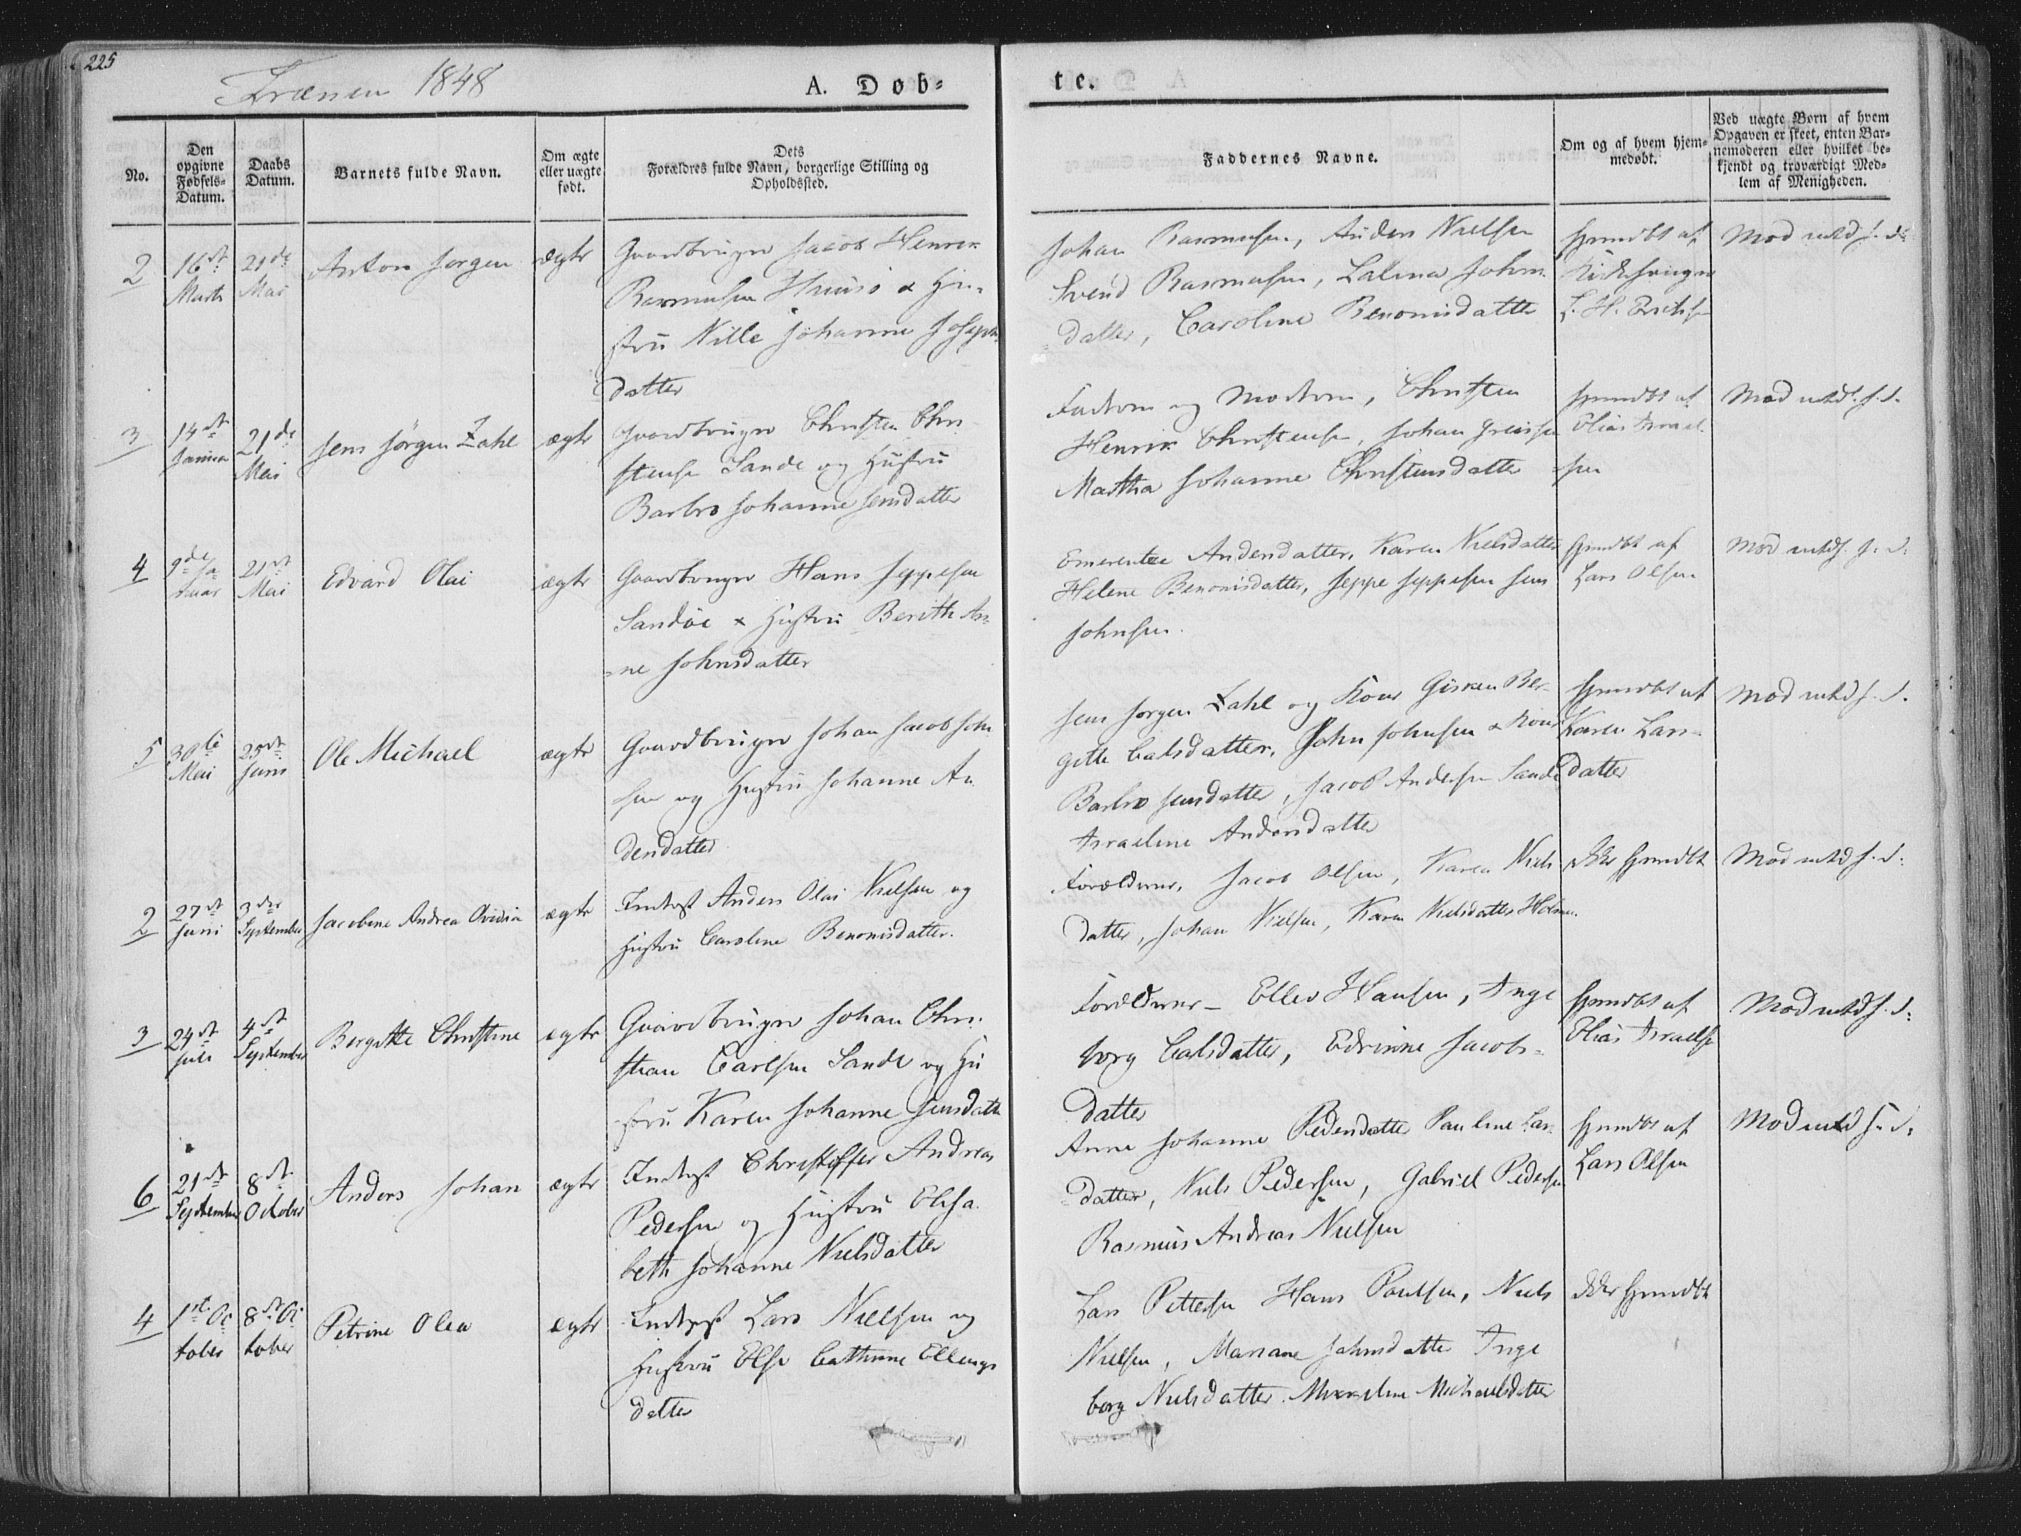 225
Trænen 1848
A. Døb-
te.
No.
Den opgivne Fødsels-Datum.
Daabs Datum.
Barnets fulde Navn.
Om ægte eller uægte født.
Dets Forældres fulde Navn, borgerlige Stilling og Opholdssted.
Faddernes Navne.
Om og af hvem hjem-medøbt.
Ved uægte Børn af hvem Opgaven er skeet, enten Bar-nemoderen eller hvilket be-kjendt og troværdigt Med-lem af Menigheden.
2
16de Marts
21de Mai
Anton Jørgen
ægte
Gaardbruger Jacob Henrik
Rasmusen Husiø & Hu-
stru Nille Johanne Joseph
datter
Johan Rasmusen, Anders Nielsen
Svend Rasmusen, Lalina Johns
datter, Caroline Benonisdatter
Hjemdbt af
Kirkesanger
L. H. Erichs
3
14de Januar
21de Mai
Jens Jørgen Zahl
ægte
Gaardbruger Christen Chri
stense Sande og Hustru
Barbro Johanne Jensdatter
Fadrene og Modrene, Christen
Henrik Christensen, Johan
Martha Johanne Christensdatter
Hjemdbt af
Elias Israel
sen
4
9de Ja
nuar
21de Mai
Edvard Olai
ægte
Gaardbruger Hans Jeppesen
Sandøe & Hustru Berith An-
ne Johnsdatter
Emerentze Andersdatter, Karen Nielsdatter
Helene Benonisdatter, Jeppe Jeppesen Jens
Johnsen.
Hjemdbt af
Lars Olsen
5
30te Mai
25de Juni
Ole Michael
ægte
Gaardbruger Johan Jacob John
sen og Hustru Johanne An
dersdatter
Jens Jørgen Zahl og Kone Gisken Ber-
gitte Calsdatter, John Johnsen & Kone
Barbro Jensdatter, Jacob Andersen Sande
Israeline Andersdatter
Hjemdbt af
Karen Lars-
datter
2
27de Juni
3die September
Jacobine Andrea Ovidia
ægte
Inderst Anders Olai Nielsen og
Hustru Caroline Benonisdatter.
Forældrene, Jacob Olsen, Karen Niels
datter, Johan Nielsen, Karen Nielsdatter Holmen.
Ikke hjemdbt
3
24de Juli
4de September
Bergitte Christine
ægte
Gaardbruger Johan Chri
stian Carlsen Sande og Hu
stru Karen Johanne Jensdatte
Forældrene - Eller Hansen, Inge
borg Calsdatter, Edrinne Jacobs-
datter
Hjemdbt af
Elias Israelse
6
21de September
8de October
Anders Johan
ægte
Inderst Christoffer Andreas
Pedersen og Hustru Elisa
beth Johanne Nielsdatter
Anne Johanne Pedersdatter Pauline Lar
datter, Niels Pedersen, Gabriel Pedersen
Rasmus Andreas Nielsen
Hjemdbt af
Lars Olsen
4
1ste Oc
tober
8de Oc
tober
Petrine Olea
ægte
Inderst Lars Nielsen og
Hustru Else Cathrine Ellings
datter
Lars Pettersen Hans Paulsen, Niels
Nielsen, Mariane Johnsdatte Inge
borg Nielsdatter Michaelsdatter
Ikke hjemdbt